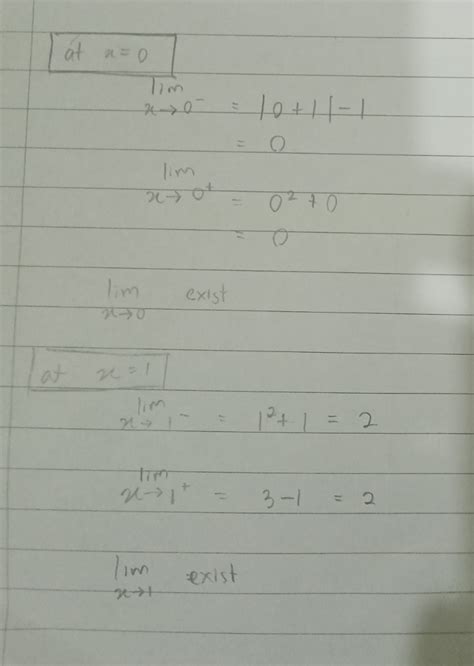 at x = 0
lim x→0⁻ = |0+1|−1
= 0
lim x→0⁺ = 0² + 0
= 0
lim x→0 exist
at x = 1
lim x→1⁻ = 1² + 1 = 2
lim x→1⁺ = 3 − 1 = 2
lim x→1 exist